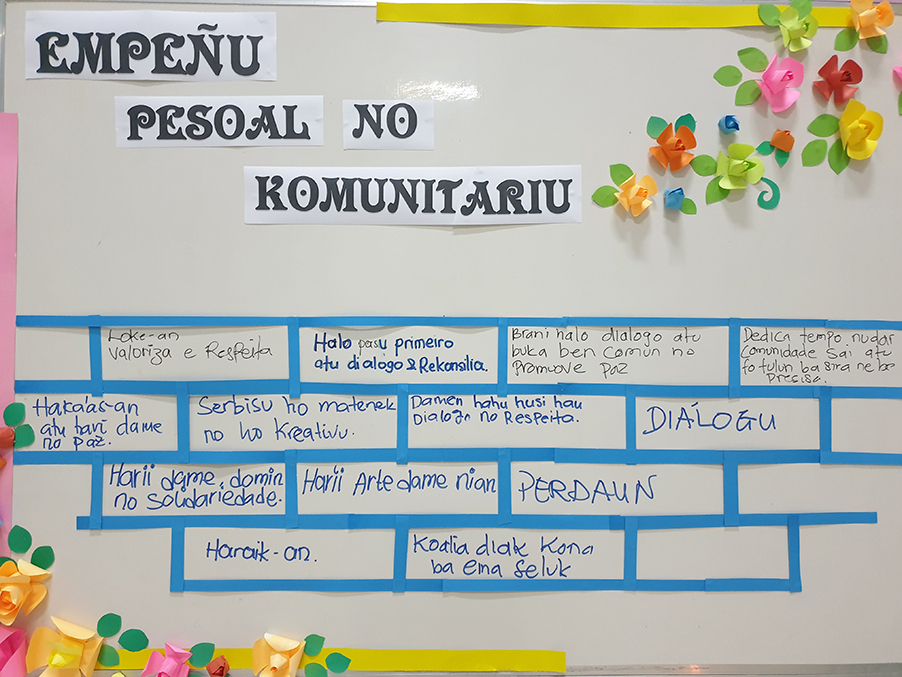 EMPEÑU
PESOAL NO
KOMUNITARIU
Loke-an
valoriza e Respeita
Halo pasu primeiro
atu dialogo & Rekonsilia.
Brani halo dialogo atu
buka ben comun no
Promove paz
Dedica tempo nudar
Comunidade sai atu
fo tulun ba sira ne be
Precisa.
Haka'as-an
atu hari dame
no paz.
Serbisu ho matenek
no ho kreativu.
Damen hahu husi hau
Dialogo no Respeita.
DIÁLOGU
Harii dame, domin
no Solidariedade.
Harii Arte dame nian
PERDAUN
Haraik-an.
Koalia diak Kona
ba ema seluk